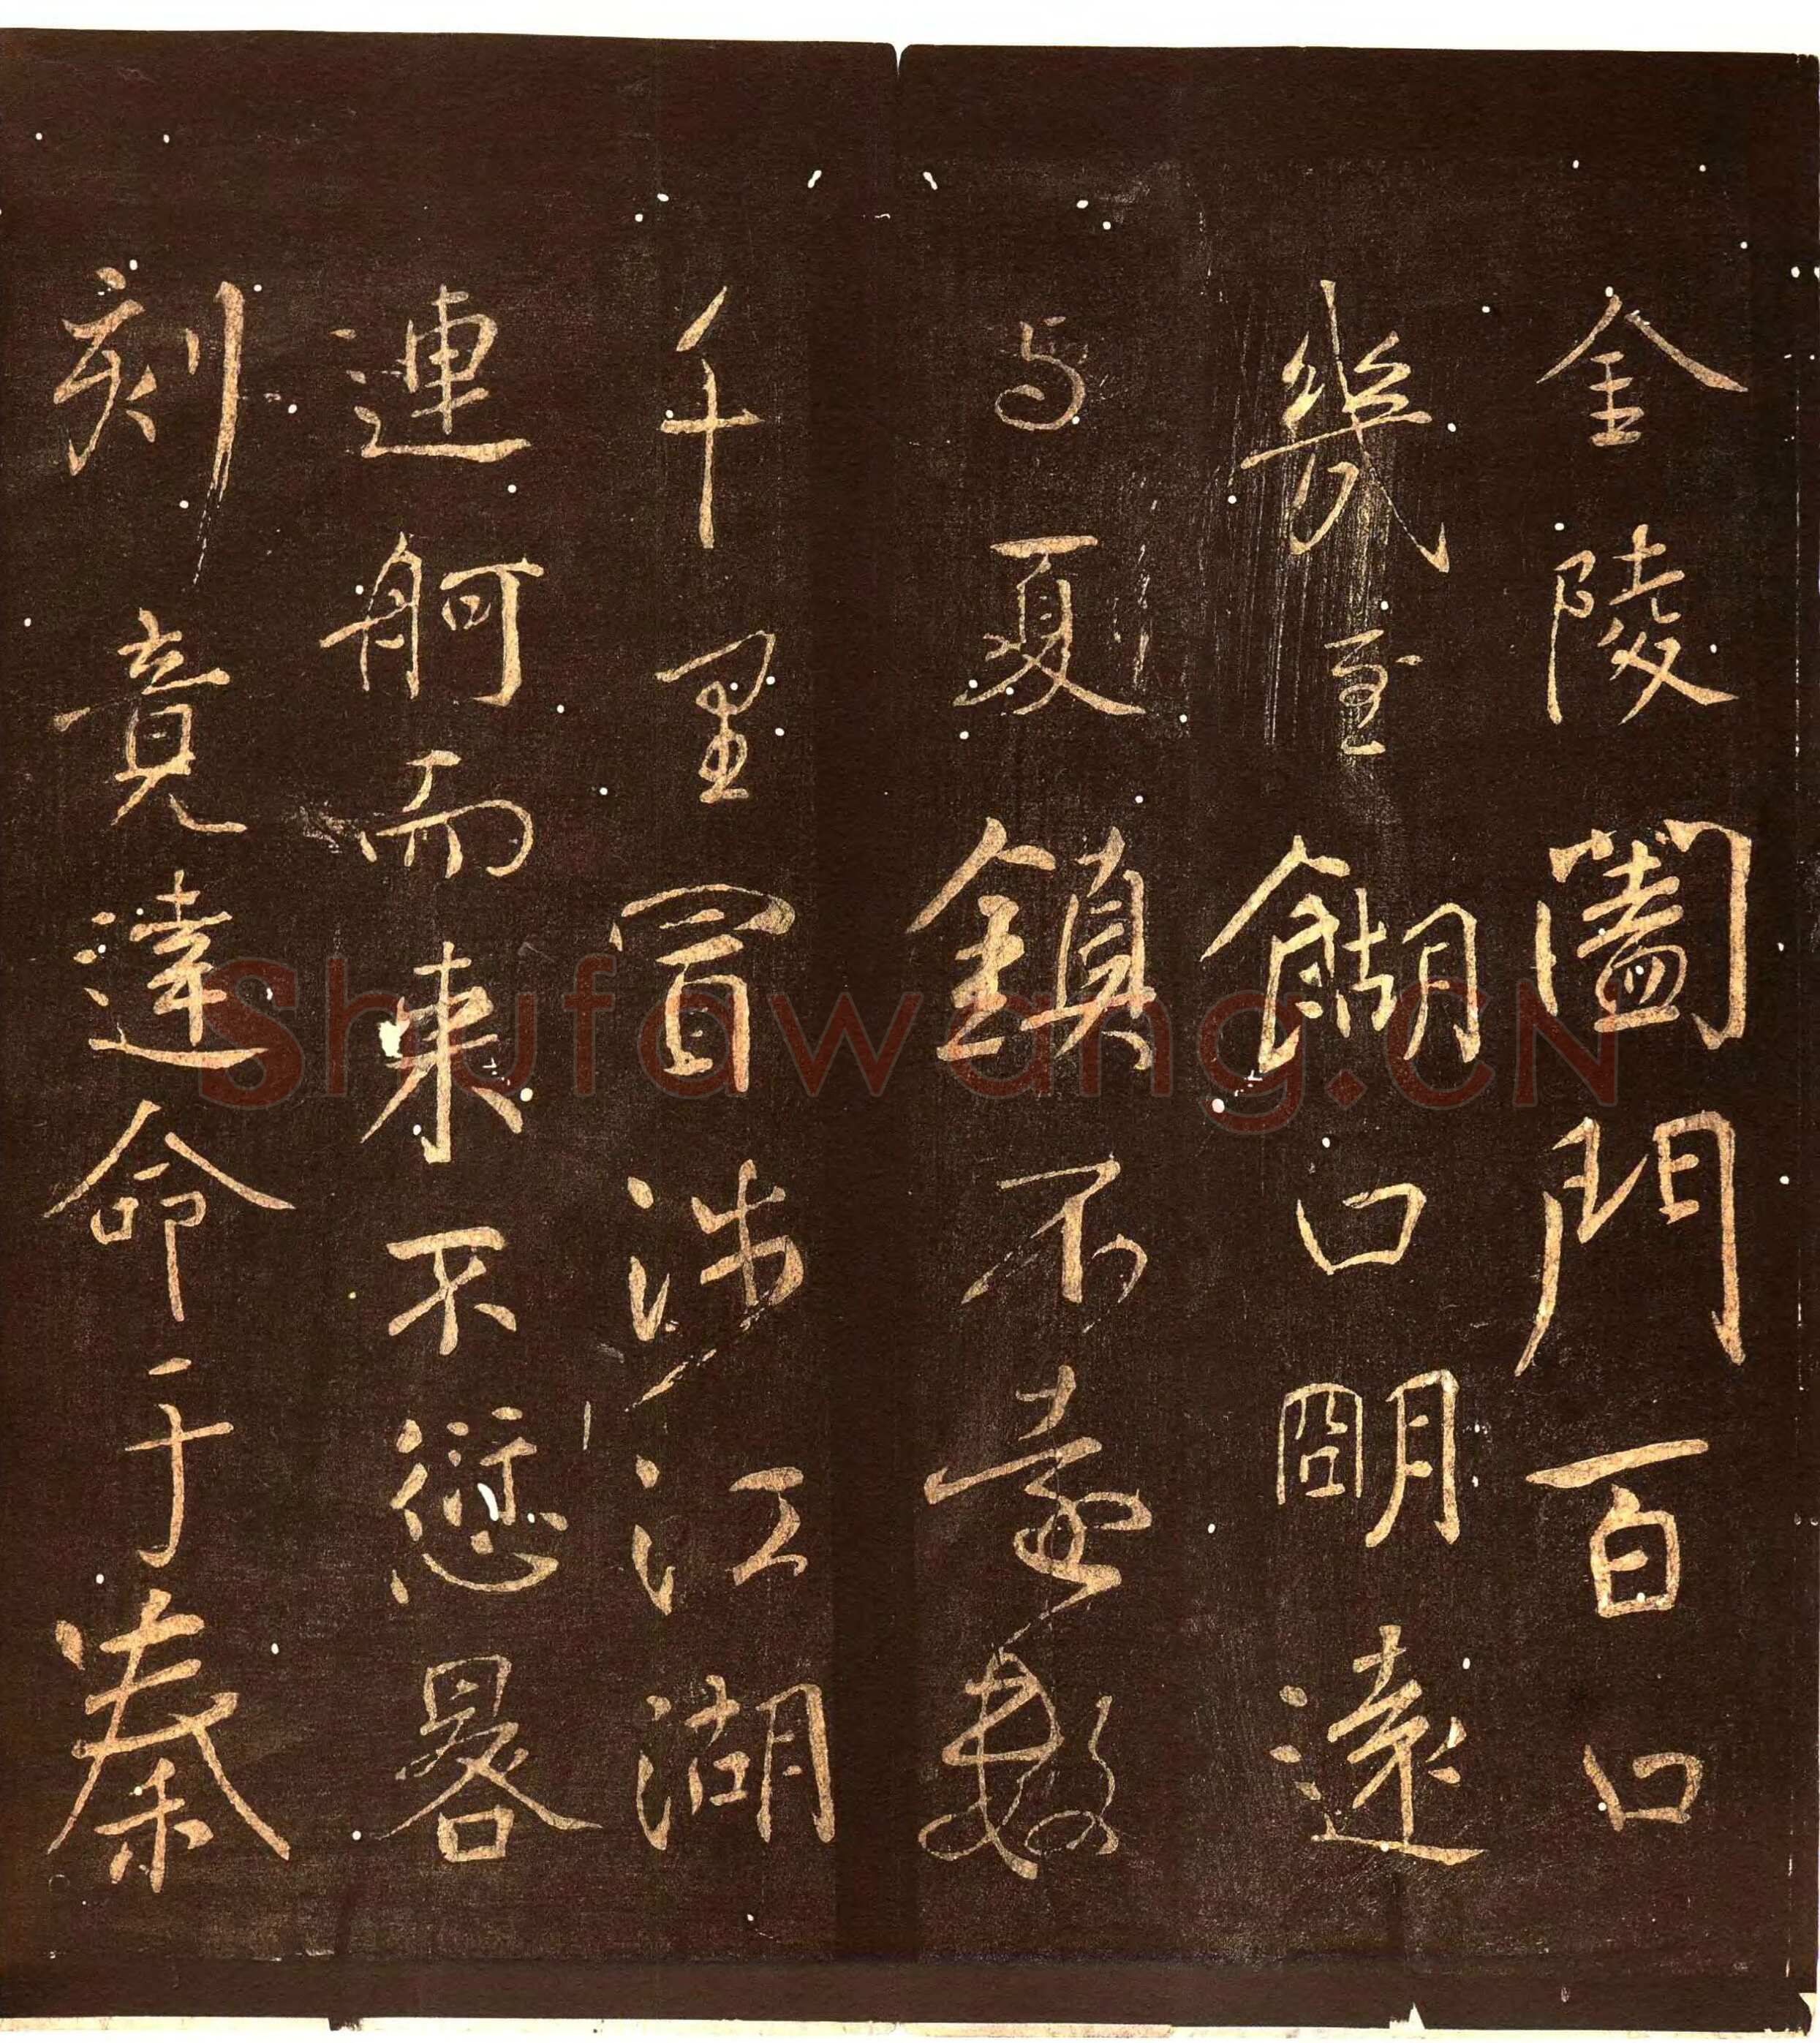 金陵闔門百口
幾至餬口朙遠
与夏鎮不遠數
千里冒涉江湖
連舸而來不愆晷
刻竟達命于秦
Shufawang.CN